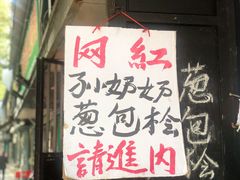 网紅
孙奶奶
葱包桧
請進内
葱包桧